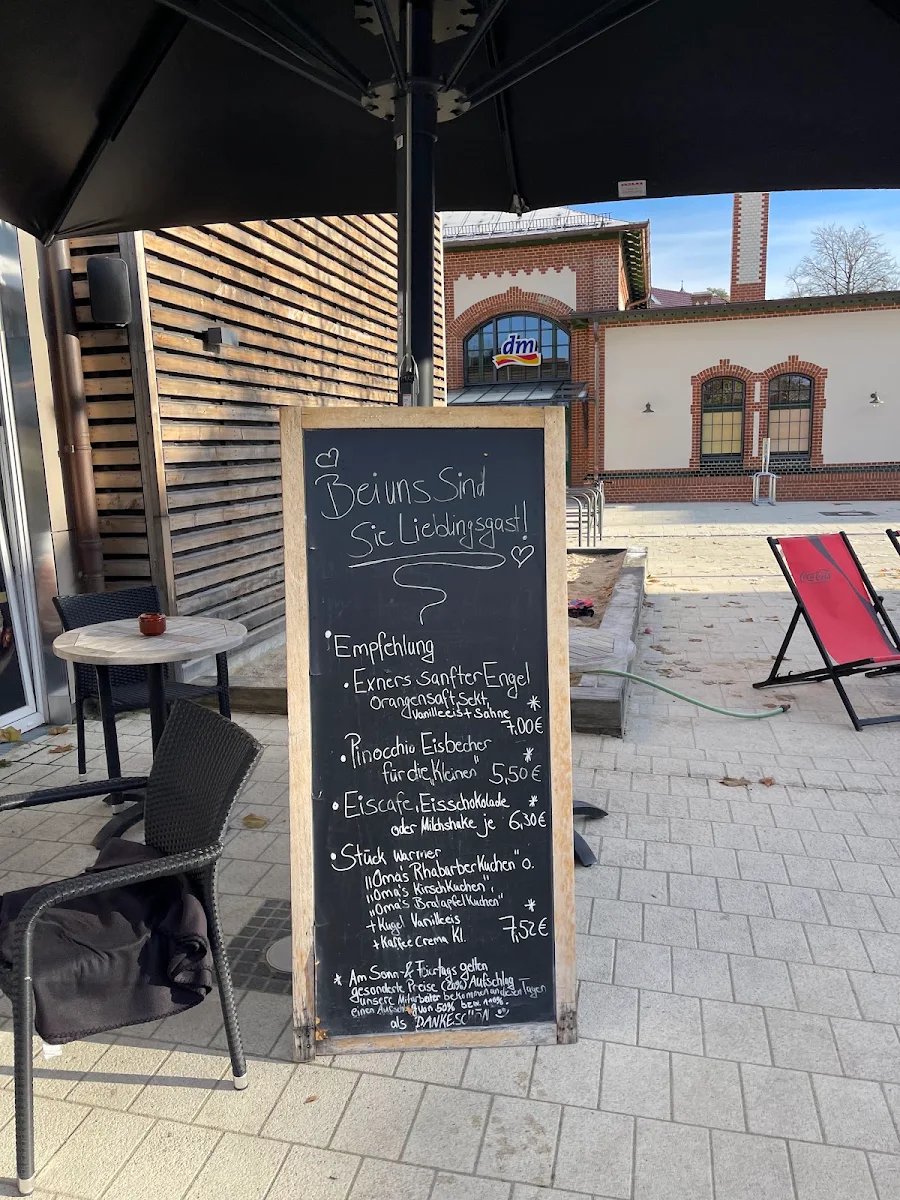 dm
Coca-Cola
Bei uns Sind
Sie Lieblingsgast!
• Empfehlung
• Exners sanfter Engel
Orangensaft, Sekt,
Vanilleeis + Sahne *
7.00€
• Pinocchio Eisbecher *
für die „Kleinen" 5,50€
• Eiscafe, Eisschokolade *
oder Milchshake je 6,30€
• Stück warmer
„Oma's Rhabarberkuchen" o.
„Oma's Kirschkuchen",
„Oma's Bratapfelkuchen" *
+ Kugel Vanilleeis 7,52€
+ Kaffee Crema Kl.
* Am Sonn- & Feiertags gelten
gesonderte Preise (20%) Aufschlag
unsere Mitarbeiter bekommen an diesen Tagen
einen Aufschlag von 50% bzw. 110%.
als